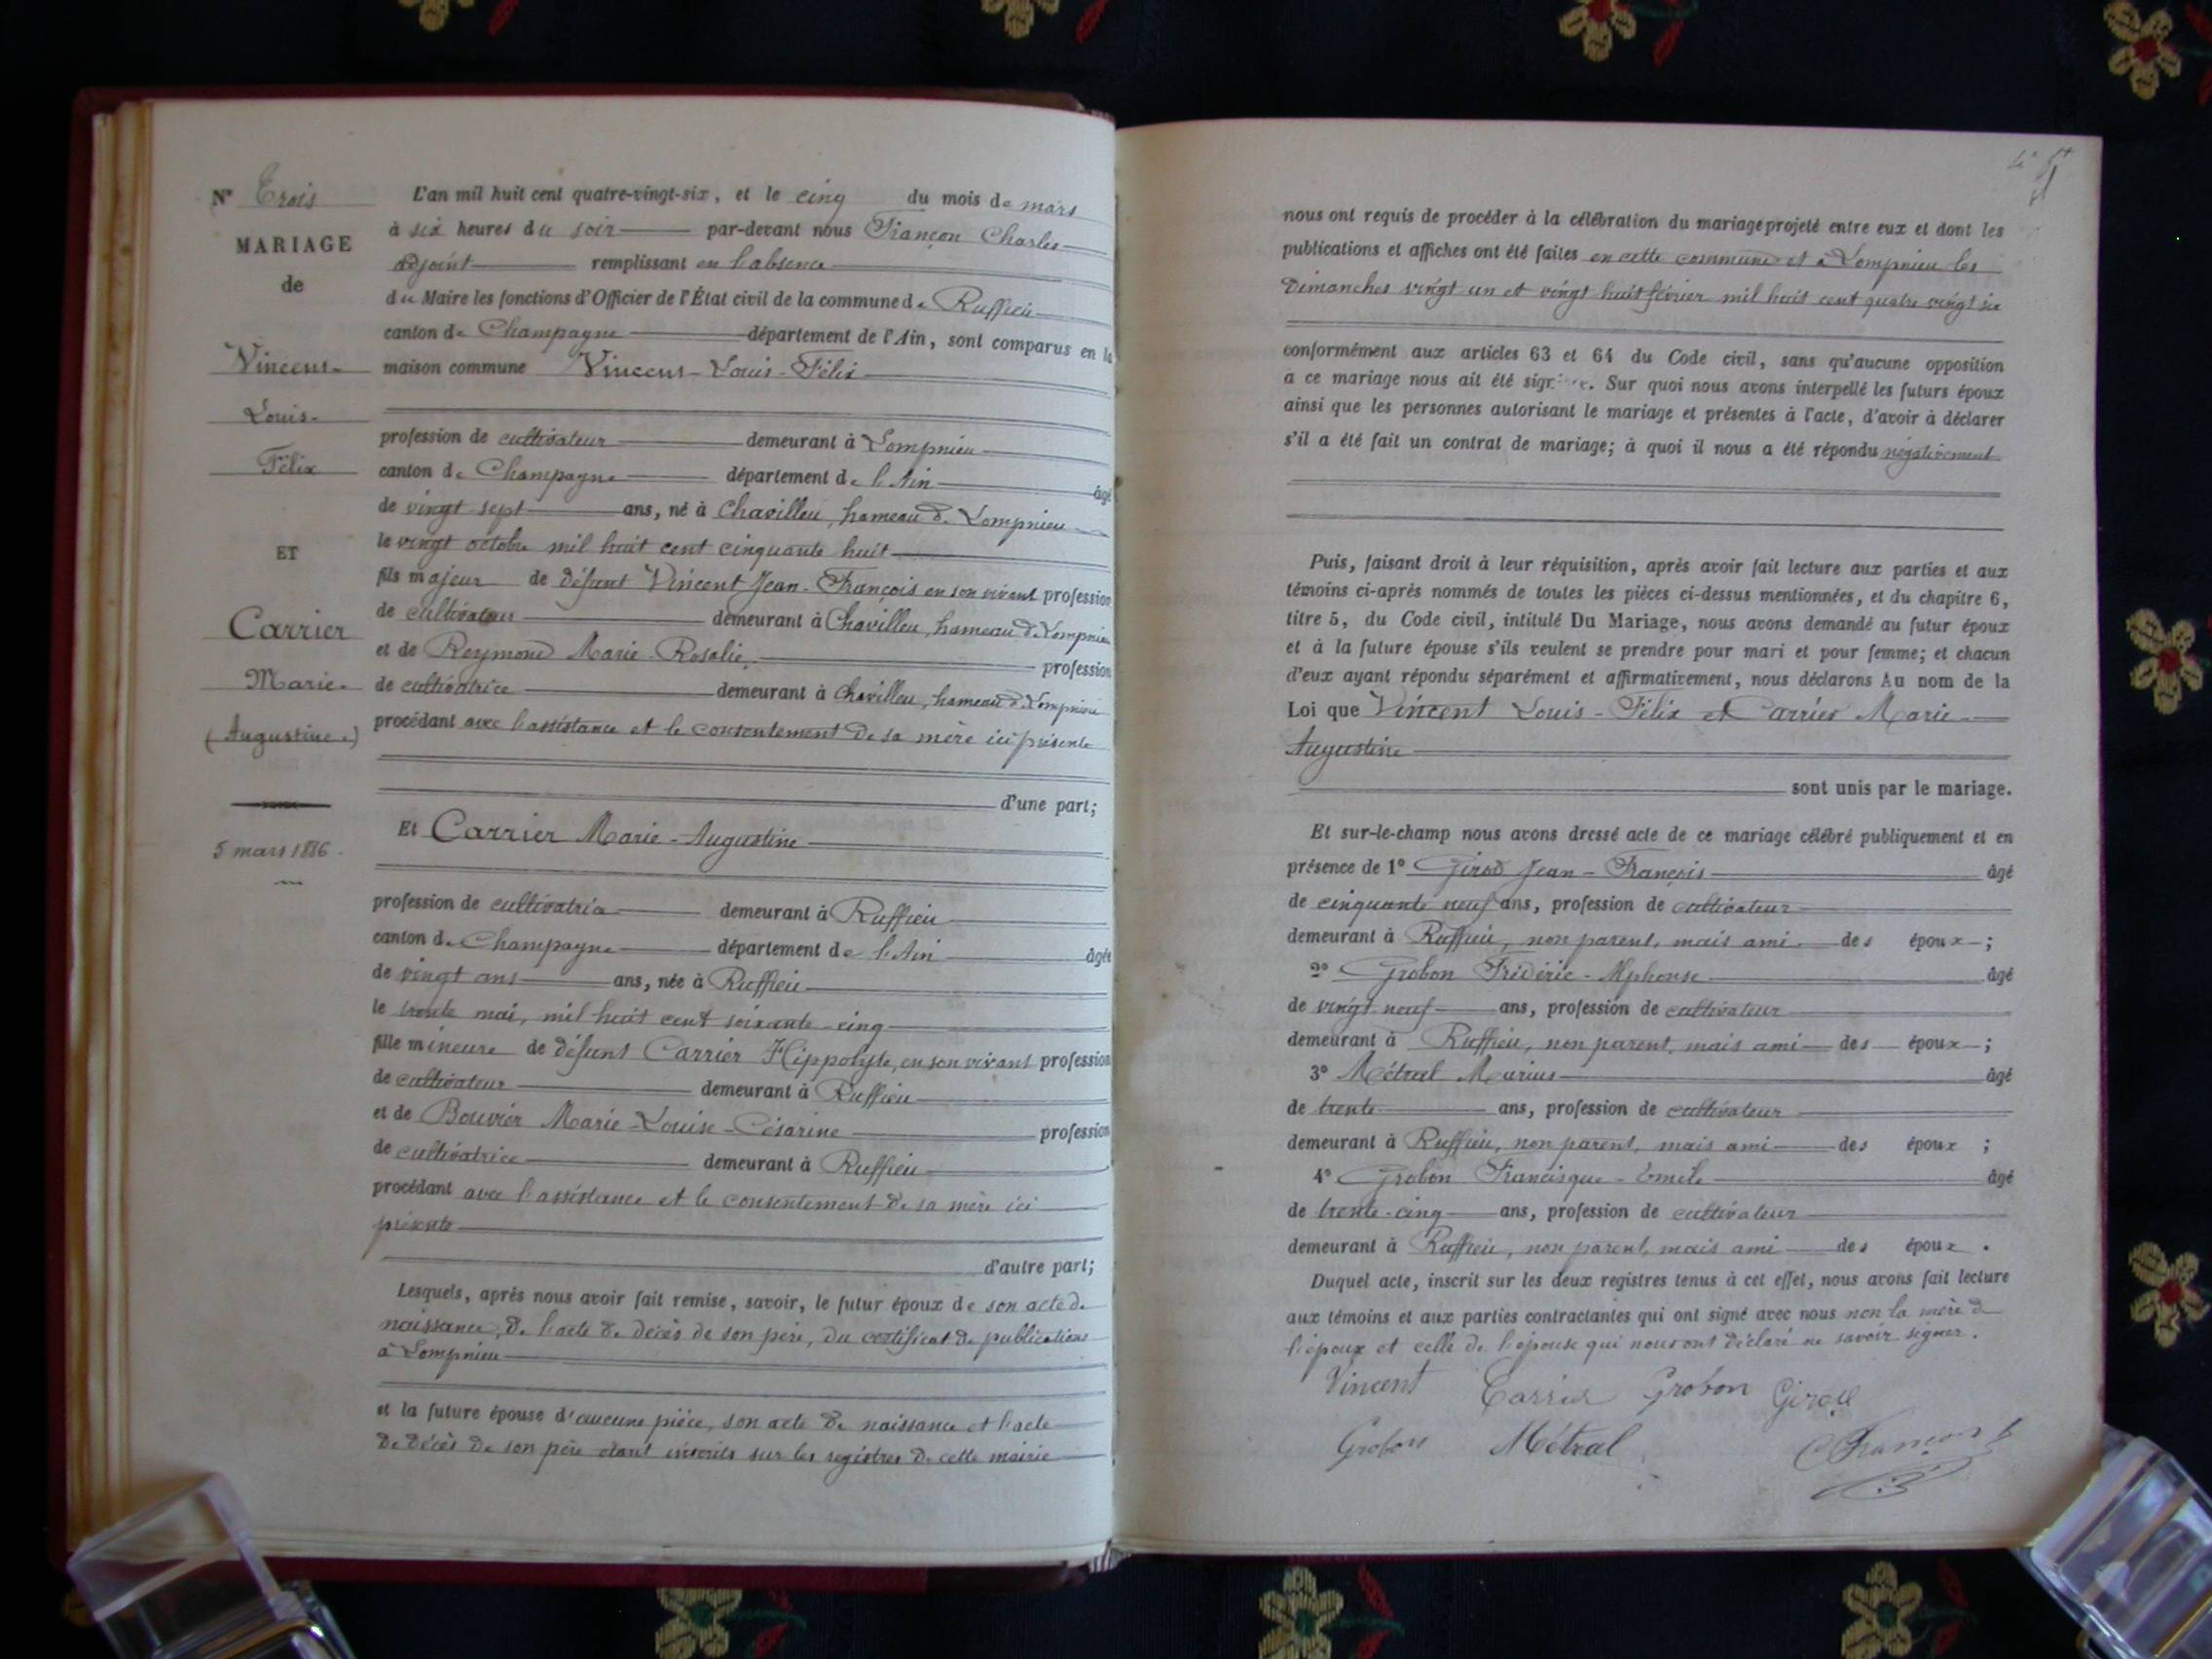 N° Trois
MARIAGE
de
Vincent
Louis
Félix
ET
Carrier
Marie
(Augustine.)
5 mars 1886.
L'an mil huit cent quatre-vingt-six, et le cinq du mois de mars
à six heures du soir par-devant nous Françon Charles
adjoint remplissant en l'absence
du Maire les fonctions d'Officier de l'État civil de la commune de Ruffieu
canton de Champagne département de l'Ain, sont comparus en la
maison commune Vincent Louis-Félix
profession de cultivateur demeurant à Lompnieu
canton de Champagne département de l'Ain âgé
de vingt sept ans, né à Chavilleu, hameau de Lompnieu
le vingt octobre mil huit cent cinquante huit
fils majeur de défunt Vincent Jean-François en son vivant profession
de cultivateur demeurant à Chavilleu, hameau de Lompnieu
et de Reymond Marie-Rosalie profession
de cultivatrice demeurant à Chavilleu, hameau de Lompnieu
procédant avec l'assistance et le consentement de sa mère ici présente
d'une part;
Et Carrier Marie-Augustine
profession de cultivatrice demeurant à Ruffieu
canton de Champagne département de l'Ain âgée
de vingt ans ans, née à Ruffieu
le trente mai, mil huit cent soixante-cinq
fille mineure de défunt Carrier Hippolyte, en son vivant profession
de cultivateur demeurant à Ruffieu
et de Bouvier Marie-Louise-Césarine profession
de cultivatrice demeurant à Ruffieu
procédant avec l'assistance et le consentement de sa mère ici
présente
d'autre part;
Lesquels, après nous avoir fait remise, savoir, le futur époux de son acte de
naissance, de l'acte de décès de son père, du certificat de publications
à Lompnieu
et la future épouse d'aucune pièce, son acte de naissance et l'acte
de décès de son père étant inscrits sur les registres de cette mairie
nous ont requis de procéder à la célébration du mariage projeté entre eux et dont les
publications et affiches ont été faites en cette commune et à Lompnieu les
Dimanches vingt un et vingt huit février mil huit cent quatre vingt six
conformément aux articles 63 et 64 du Code civil, sans qu'aucune opposition
à ce mariage nous ait été signifiée. Sur quoi nous avons interpellé les futurs époux
ainsi que les personnes autorisant le mariage et présentes à l'acte, d'avoir à déclarer
s'il a été fait un contrat de mariage; à quoi il nous a été répondu négativement
Puis, faisant droit à leur réquisition, après avoir fait lecture aux parties et aux
témoins ci-après nommés de toutes les pièces ci-dessus mentionnées, et du chapitre 6,
titre 5, du Code civil, intitulé Du Mariage, nous avons demandé au futur époux
et à la future épouse s'ils veulent se prendre pour mari et pour femme; et chacun
d'eux ayant répondu séparément et affirmativement, nous déclarons Au nom de la
Loi que Vincent Louis-Félix et Carrier Marie
Augustine
sont unis par le mariage.
Et sur-le-champ nous avons dressé acte de ce mariage célébré publiquement et en
présence de 1° Girod Jean-François âgé
de cinquante neuf ans, profession de cultivateur
demeurant à Ruffieu, non parent, mais ami des époux;
2° Grobon Frédéric-Alphonse âgé
de vingt neuf ans, profession de cultivateur
demeurant à Ruffieu, non parent, mais ami des époux;
3° Métral Marius âgé
de trente ans, profession de cultivateur
demeurant à Ruffieu, non parent, mais ami des époux;
4° Grobon Francisque-Emile âgé
de trente-cinq ans, profession de cultivateur
demeurant à Ruffieu, non parent, mais ami des époux.
Duquel acte, inscrit sur les deux registres tenus à cet effet, nous avons fait lecture
aux témoins et aux parties contractantes qui ont signé avec nous non la mère de
l'époux et celle de l'épouse qui nous ont déclaré ne savoir signer.
Vincent Carrier Grobon Girod
Grobon Métral C Françon